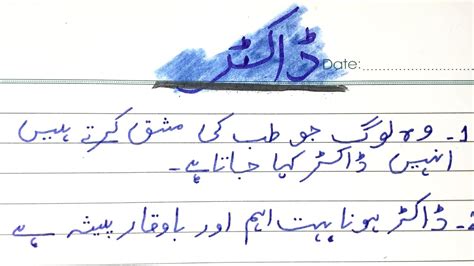 ڈاکٹر
Date:
1۔ وہ لوگ جو طب کی مشق کرتے ہیں
انہیں ڈاکٹر کہا جاتا ہے۔
2۔ ڈاکٹر ہونا بہت اہم اور باوقار پیشہ ہے